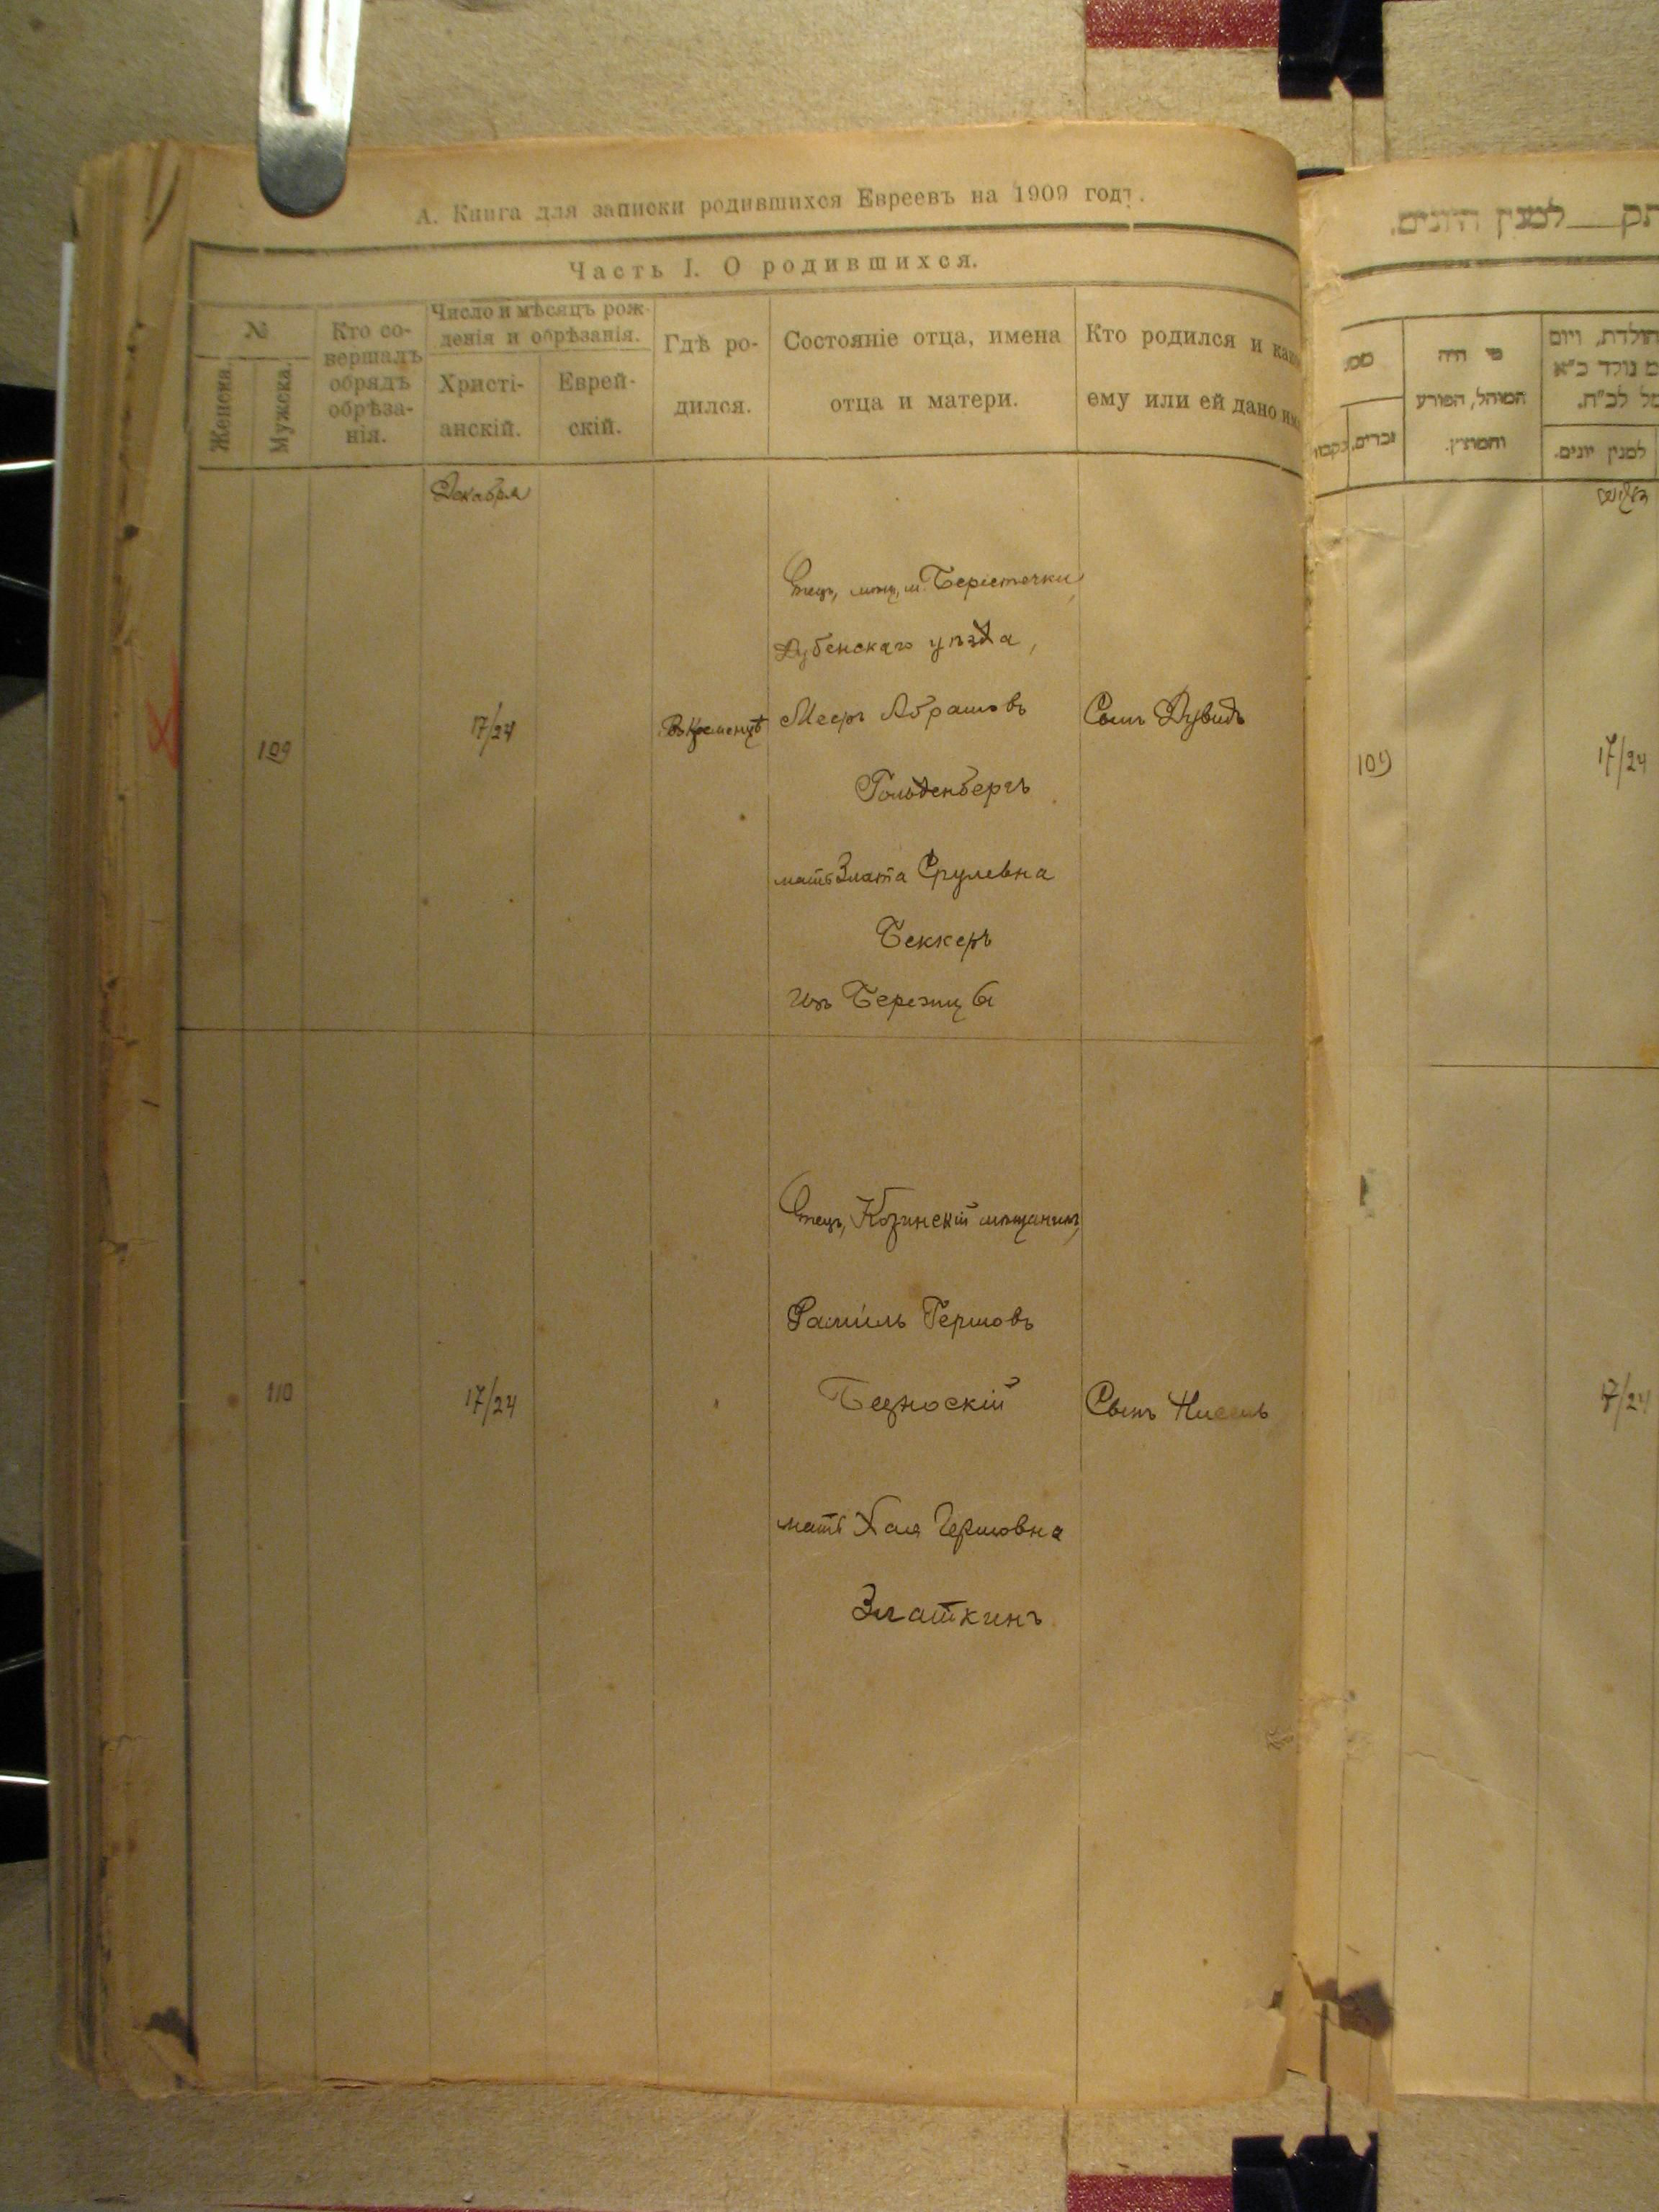 А. Книга для записки родившихся Евреевъ на 1909 годъ.
Часть I. О родившихся.
№
Женска.
Мужска.
Кто совершалъ
обрядъ
обрѣза-
нія.
Число и мѣсяцъ рож-
денія и обрѣзанія.
Христі-
анскій.
Еврей-
скій.
Гдѣ ро-
дился.
Состояніе отца, имена
отца и матери.
Кто родился и како
ему или ей дано имя
Декабря
109
17/24
Въ Кременцѣ
Отецъ, мѣщ. м. Берестечки
Дубенскаго уѣзда,
Мееръ Абрамовъ
Гольденбергъ
мать Злата Срулевна
Беккеръ
изъ
Сынъ Дувидъ
110
17/24
Отецъ, Козинскій мѣщанинъ,
Гершовъ
мать Хая Гершовна
Златкинъ
Сынъ Нисель
למנין היונים.
מי היה
המוהל, הפורע
והמתין.
זכרים.
למנין יונים.
109
17/24
17/24